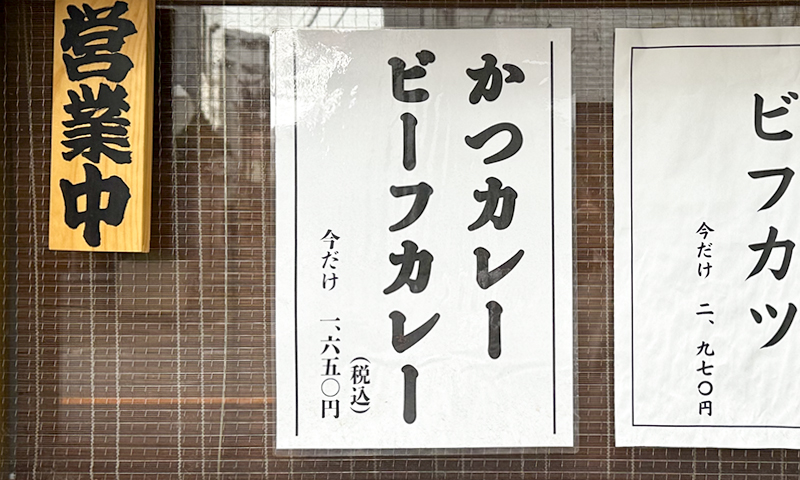 営業中
かつカレー
ビーフカレー
(税込)
今だけ 一、六五〇円
ビフカツ
今だけ 二、九七〇円